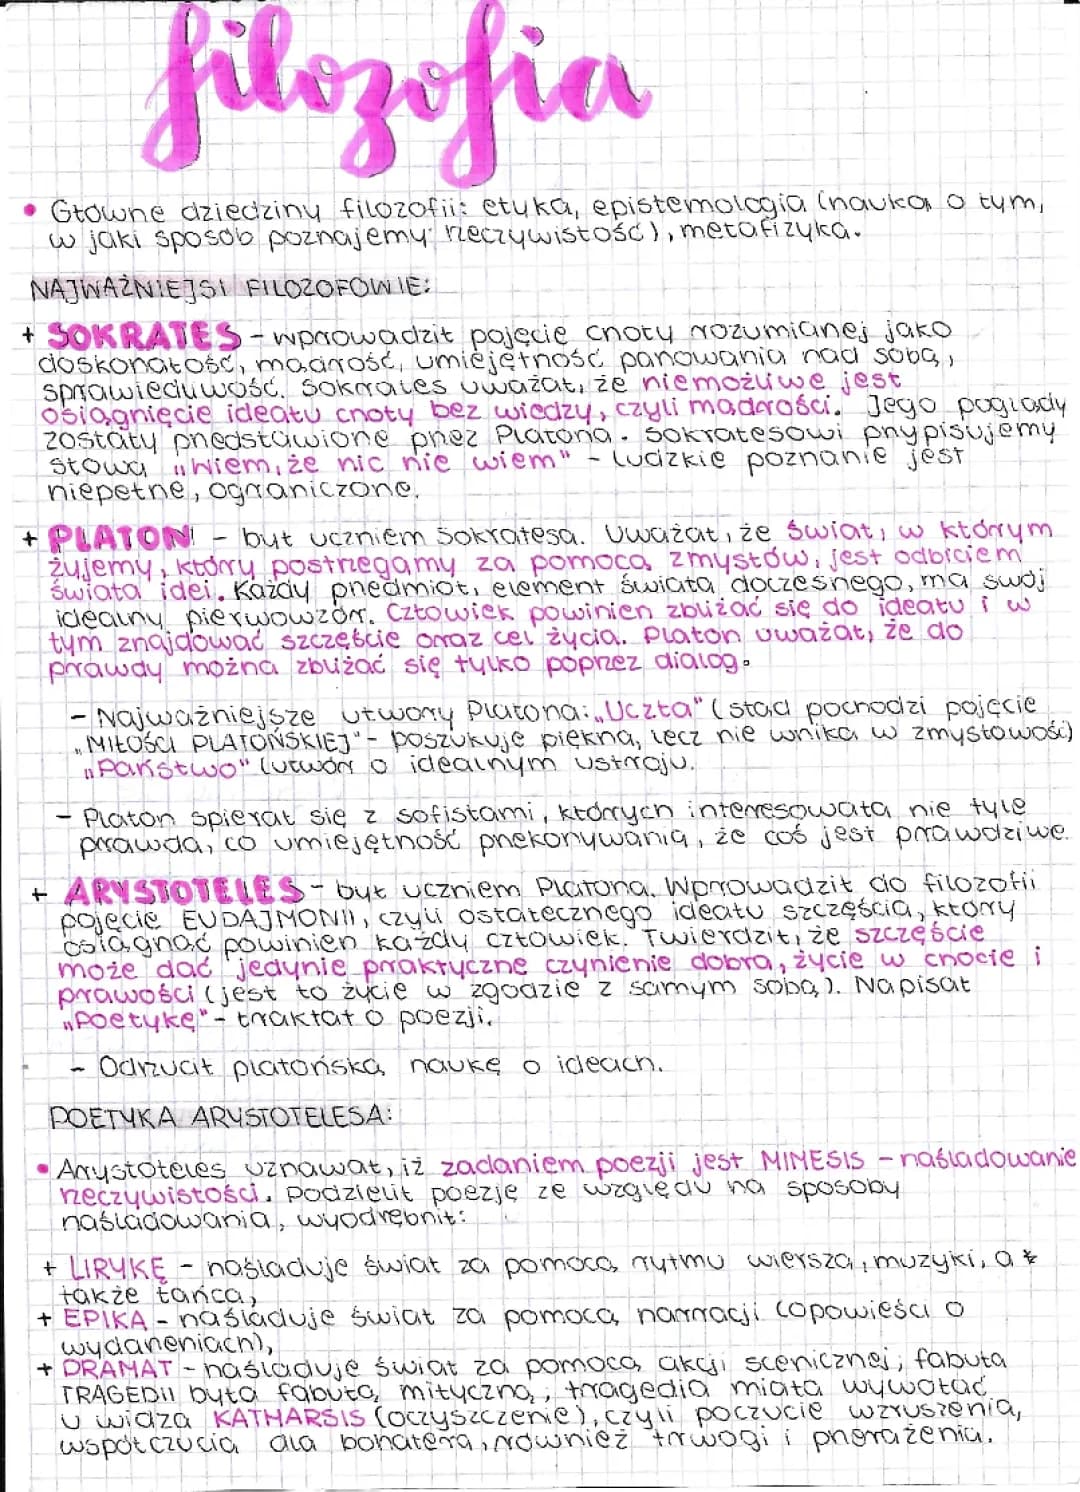 filozofia
• Główne dziedziny filozofii: etyka, epistemologia (nauka o tym,
w jaki sposób poznajemy rzeczywistość), metafizyka.
NAJWAŻNIEJSI FILOZOFOWIE:
+ SOKRATES - wprowadził pojęcie cnoty rozumianej jako
doskonałość, mądrość, umiejętność panowania nad sobą,
sprawiedliwość. Sokrates uważał, że niemożliwe jest
osiągnięcie ideału cnoty bez wiedzy, czyli mądrości. Jego poglądy
zostały przedstawione przez Platona. Sokratesowi przypisujemy
słowa „Wiem, że nic nie wiem" - ludzkie poznanie jest
niepełne, ograniczone.
+ PLATON - był uczniem Sokratesa. Uważał, że świat, w którym
żyjemy, który postrzegamy za pomocą zmysłów, jest odbiciem
świata idei. Każdy przedmiot, element świata doczesnego, ma swój
idealny pierwowzór. Człowiek powinien zbliżać się do ideału i w
tym znajdować szczęście oraz cel życia. Platon uważał, że do
prawdy można zbliżać się tylko poprzez dialog.
- Najważniejsze utwory Platona: „Uczta" (stąd pochodzi pojęcie
„MIŁOŚCI PLATOŃSKIEJ" - poszukuje piękna, lecz nie wnika w zmysłowość)
„Państwo" (utwór o idealnym ustroju.
- Platon spierał się z sofistami, których interesowała nie tyle
prawda, co umiejętność przekonywania, że coś jest prawdziwe.
+ ARYSTOTELES - był uczniem Platona. Wprowadził do filozofii
pojęcie EUDAJMONII, czyli ostatecznego ideału szczęścia, który
osiągnąć powinien każdy człowiek. Twierdził, że szczęście
może dać jedynie praktyczne czynienie dobra, życie w cnocie i
prawości (jest to życie w zgodzie z samym sobą). Napisał
„Poetykę" - traktat o poezji.
- Odrzucił platońską naukę o ideach.
POETYKA ARYSTOTELESA:
• Arystoteles uznawał, iż zadaniem poezji jest MIMESIS - naśladowanie
rzeczywistości. Podzielił poezję ze względu na sposoby
naśladowania, wyodrębnił:
+ LIRYKĘ - naśladuje świat za pomocą rytmu wiersza, muzyki, a
także tańca,
+ EPIKA - naśladuje świat za pomocą narracji (opowieści o
wydarzeniach),
+ DRAMAT - naśladuje świat za pomocą akcji scenicznej; fabuła
TRAGEDII była fabułą mityczną, tragedia miała wywołać
u widza KATHARSIS (oczyszczenie), czyli poczucie wzruszenia,
współczucia dla bohatera, również trwogi i przerażenia.